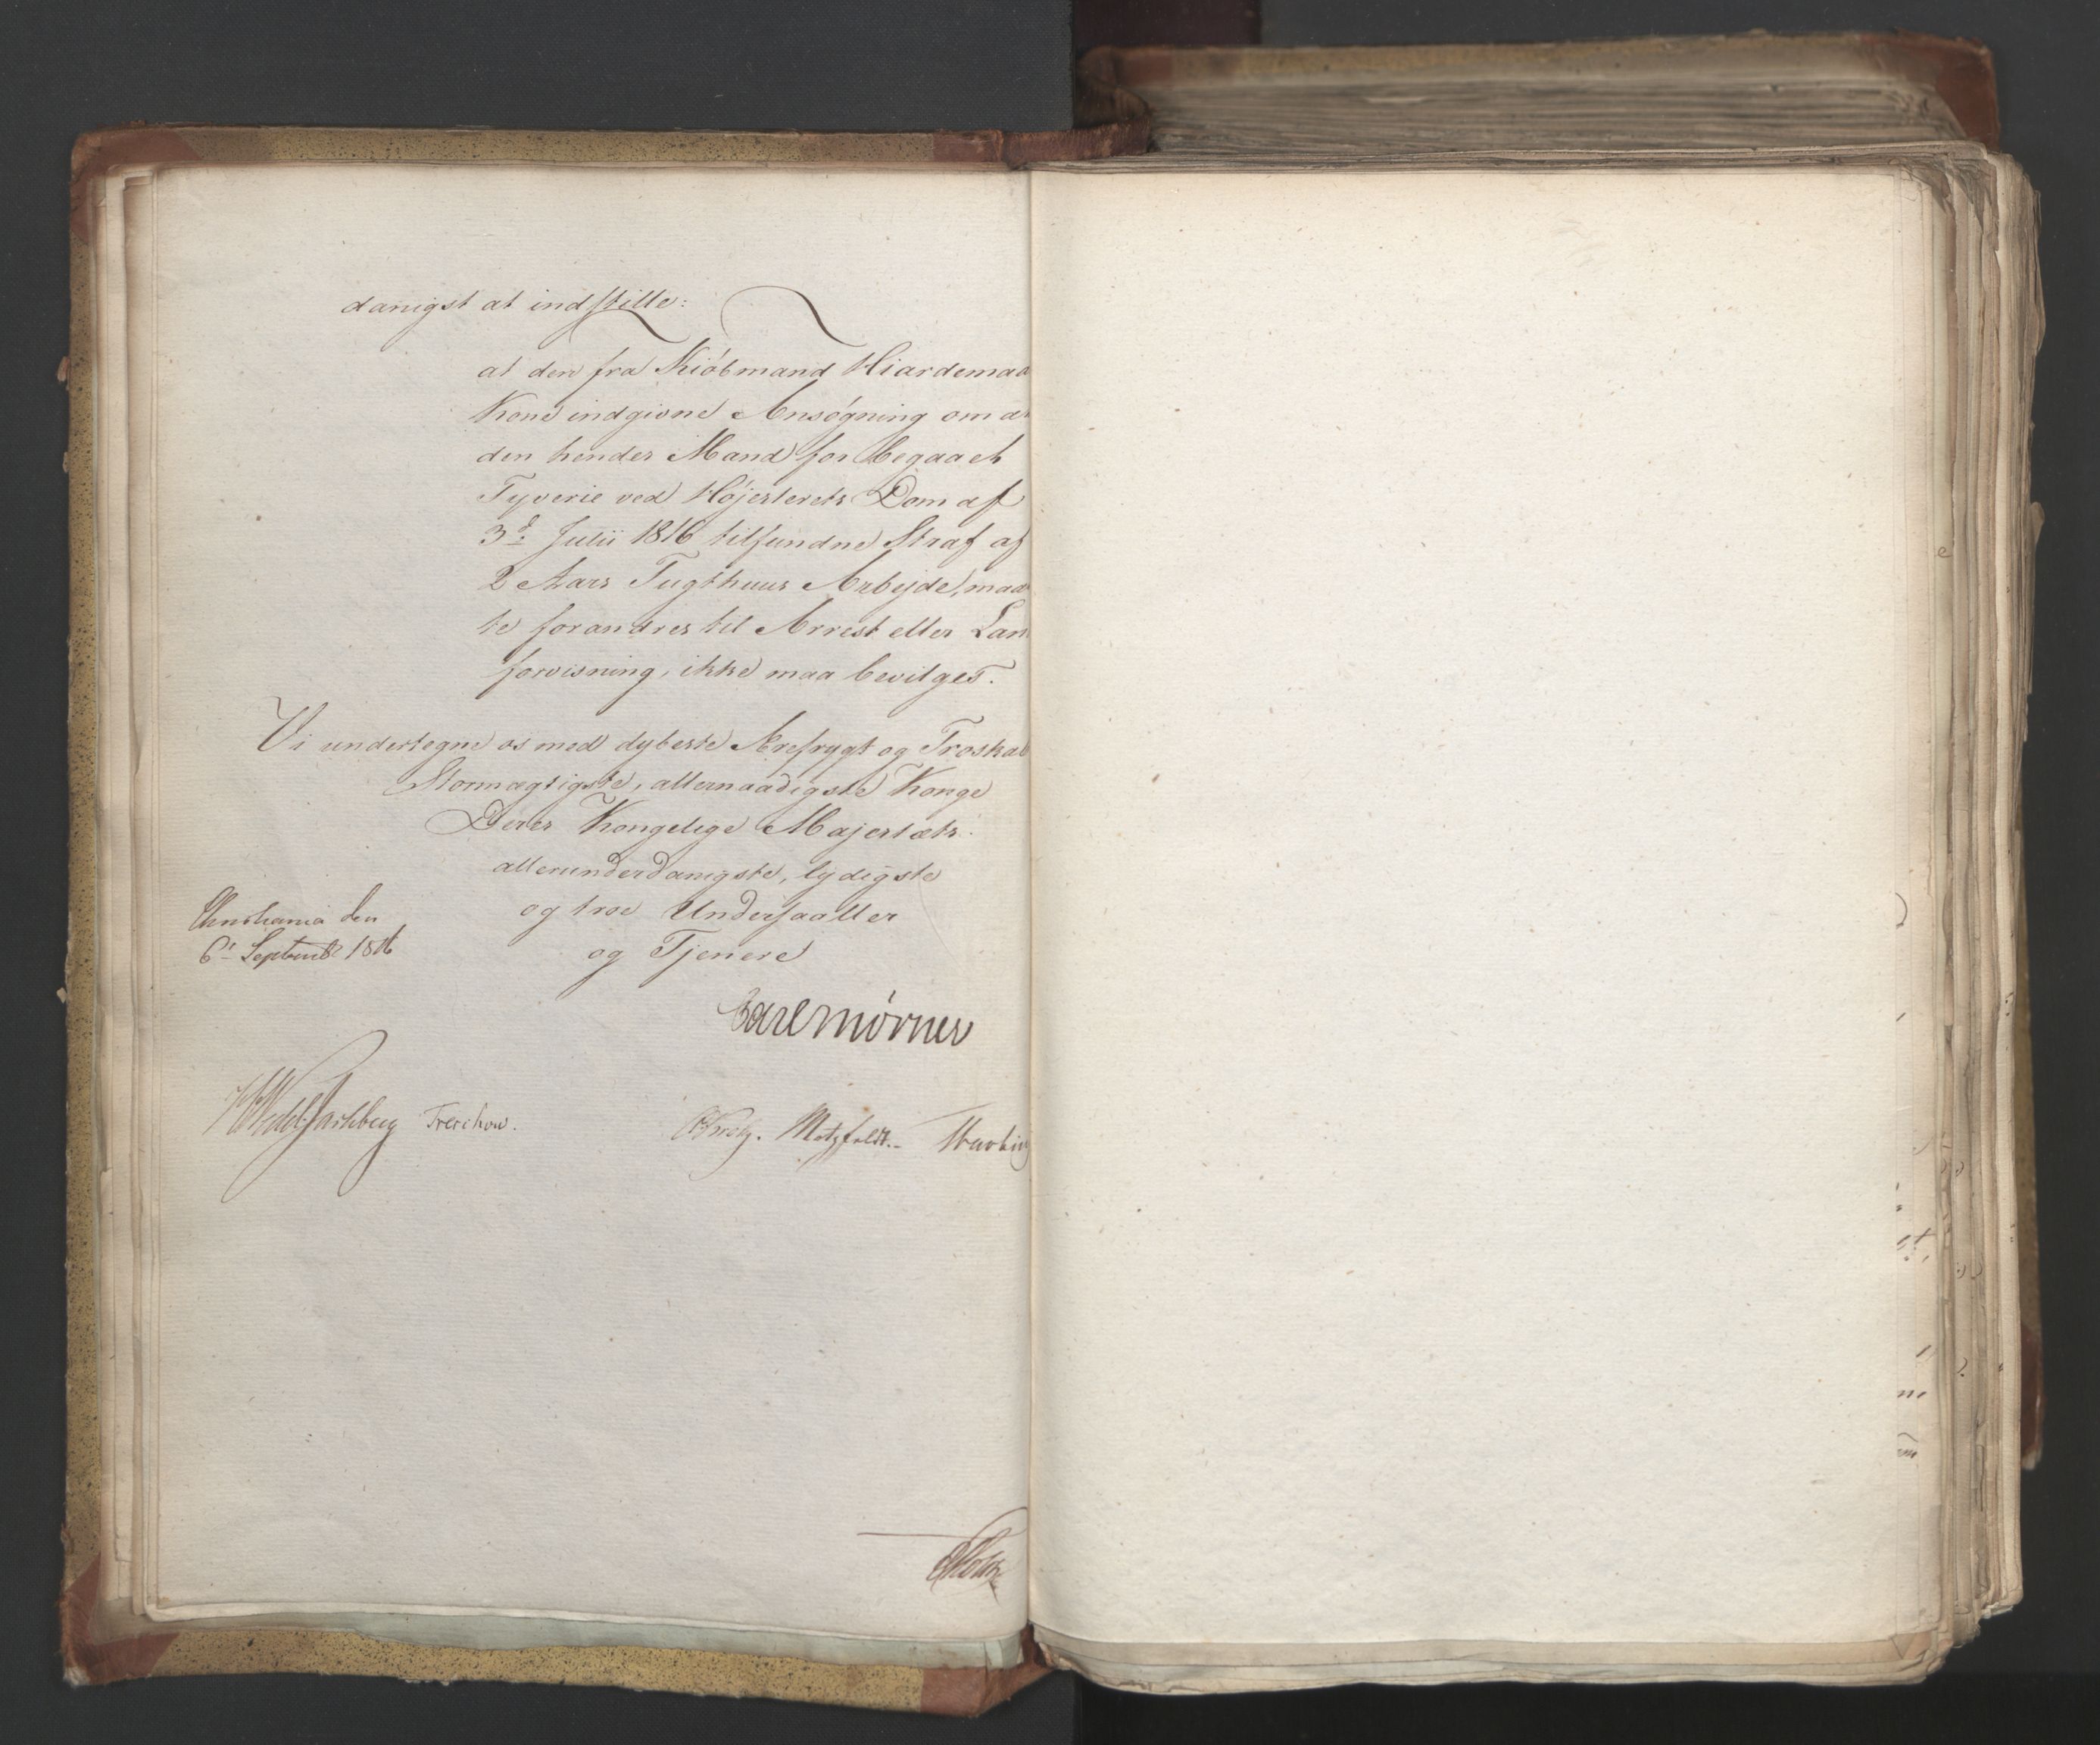 danigst at indstille:
at den fra Kiöbmand Hiardemaa
Kone indgivne Ansøgning om a
den hendes Mand for begaaet
Tyverie ved Højesterets Dom af
3d Julii 1816 tilfundne Straf af
2 Aars Tugthuus Arbejde, maa
te forandres til Arrest eller Lan
forvisning, ikke maa bevilges.
Vi undertegne os med dybeste Ærefrygt og Troskab
Stormægtigste, allernaadigste Konge
Deres Kongelige Majestæts
allerunderdanigste, lydigste
og troe Undersaatter
og Tjenere
Christiania den
6t Septembr 1816
Carl Mörner
HWedel Jarlsberg Treschow.
Krog. Motzfeldt.